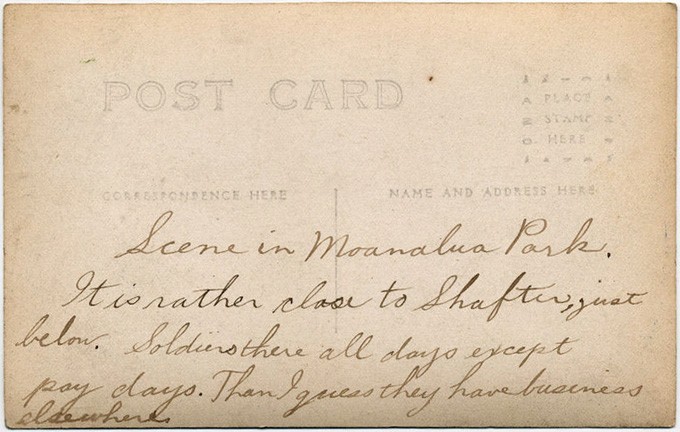 POST CARD
AZO
PLACE
STAMP
HERE
CORRESPONDENCE HERE
NAME AND ADDRESS HERE
Scene in Moanalua Park.
It is rather close to Shafter, just
below. Soldiers there all days except
pay days. Than I guess they have business
elsewhere.